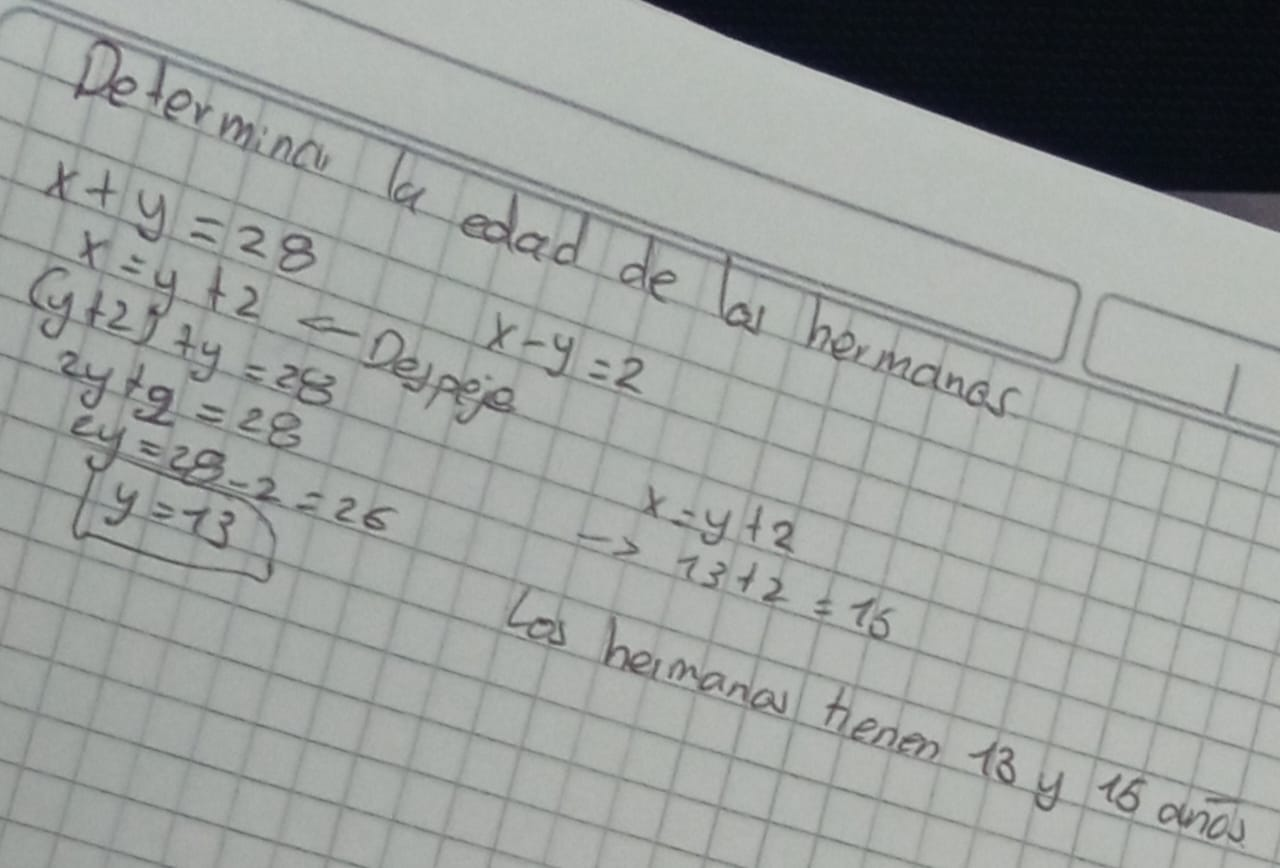 Determina la edad de los hermanos
x + y = 28
x - y = 2
x = y + 2 ← Despeje
(y+2) + y = 28
2y + 2 = 28
2y = 28 - 2 = 26
y = 13
x = y + 2
-> 13 + 2 = 15
Los hermanos tienen 13 y 15 años.